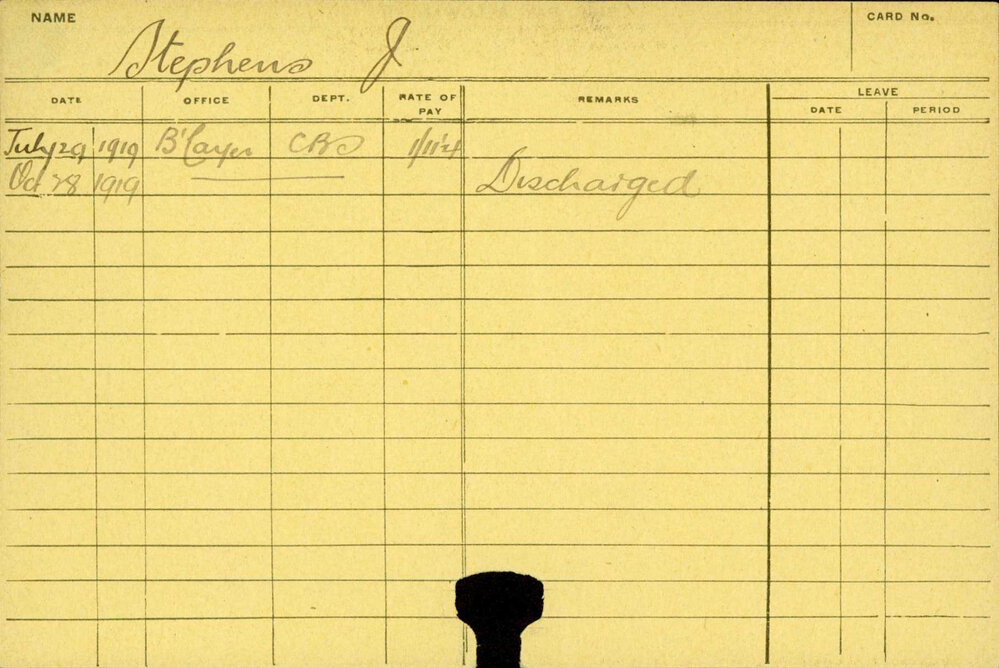 NAME CARD No.
Stephens J
LEAVE
DATE OFFICE DEPT. RATE OF PAY REMARKS DATE PERIOD
July 29 1919 B'layer CRS 1/11¼
Oct 28 1919 Discharged